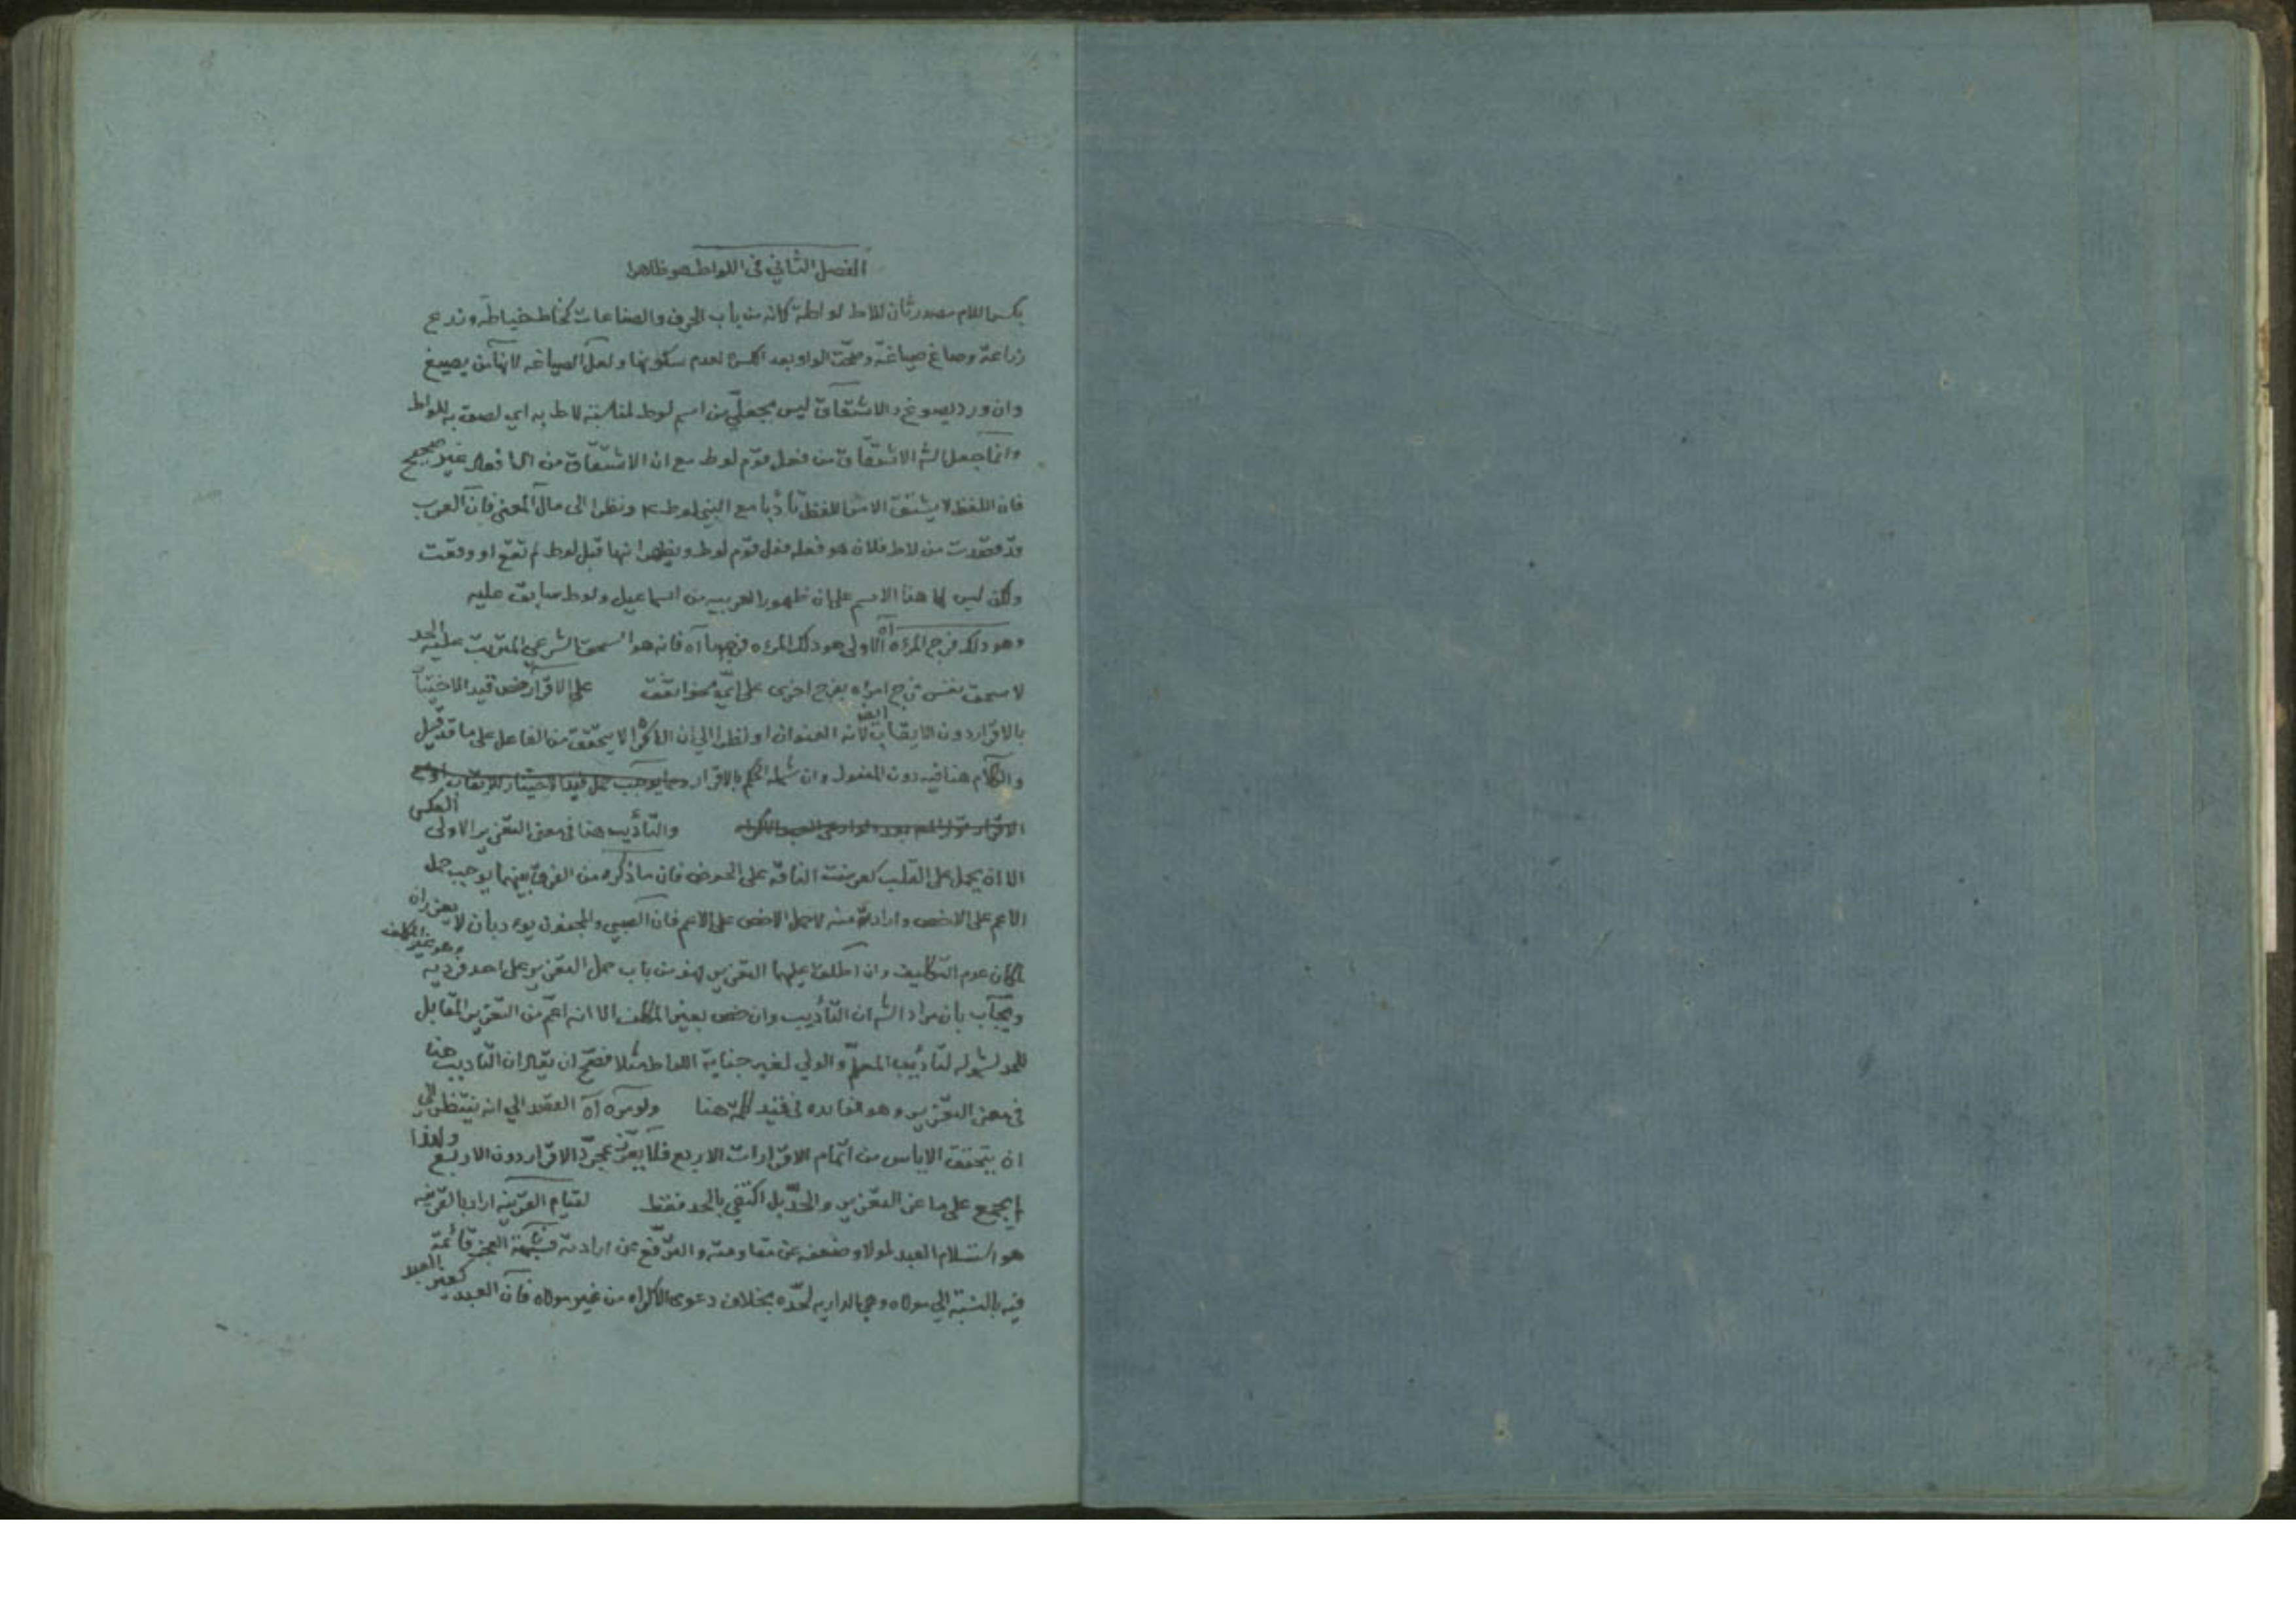 الفصل الثاني في اللواط هو ظاهرا
بكسر اللام مصدر ثان للاط لواطة كانه من باب الحرف والصناعات كخاط خياطة وزرع
زراعة وصاغ صياغة وصحت الواو بعد الكسرة لعدم سكونها ولعل الصياغة لانها من يصيغ
وان ورد يصوغ والاشتقاق ليس بجعلي من اسم لوط لمناسبة لاط به اي لصق به للواط
وانما جعل الشه الاشتقاق من فعل قوم لوط مع ان الاشتقاق من الافعال غير صحيح
فان اللفظ لا يشتق الا من اللفظ تأدبا مع النبي لوط ونظرا الى مآل المعنى فان العرب
قد قصدت من لاط فلان هو فعله فعل قوم لوط ويظهر انها قبل لوط لم تقع او وقعت
ولكن ليس لها هذا الاسم على ان ظهور العربيه من اسماعيل ولوط سابق عليه
وهو دلك فرج المرءة اه الاولى هو دلك المرءه فرجها اه فانه هو السحق الشرعي المترتب عليه الحد
لا سحق نفس فرج امراه بفرج اخرى على اي نحو اتفق على الاقرار خص قيد الاختيار
بالاقرار دون الايقاب لانه العنوان او نظرا الى ان الاكراه لا يتحقق من الفاعل على ما قد قيل
والكلام هنا فيه دون المفعول وان شمله الحكم بالاقرار
والتأديب هنا في معنى التعزير الاولى العكس
الا ان يحمل على القلب كعرضت الناقة على الحوض فان ما ذكره من الفرق بينهما يوجب حمل
الاعم على الاخص وارادته منه لا حمل الاخص على الاعم فان الصبي والمجنون يؤدبان لا يعزران
لمكان عدم التكليف وان اطلق عليهما التعزير فهو من باب حمل التعزير على احد فرديه وهو غير المكلف
ويجاب بان مراد الشه ان التأديب وان خص بغير المكلف الا انه اعم من التعزير المقابل
للحد لشموله لتأديب المعلم والولي لغير جناية اللواط مثلا فصح ان يقال ان التاديب هنا
في معنى التعزير وهو فائده في قيد كلمة هنا ولو مرة اه العقد الي انه ينتظر الى
ان يتحقق الاياس من اتمام الاقرارات الاربع فلا يعزر بمجرد الاقرار دون الاربع ولهذا
لم يجمع على ماعز التعزير والحد بل اكتفي بالحد فقط لقيام القرينه اراد بالقرينه
هو استسلام العبد لمولاه وضعفه عن مقاومته والترفع عن ارادته فشبهة العجز قائمة
فيه بالنسبة الي مولاه وهي الداريه لحده بخلاف دعوى الاكراه من غير مولاه فان العبد كغير العبد